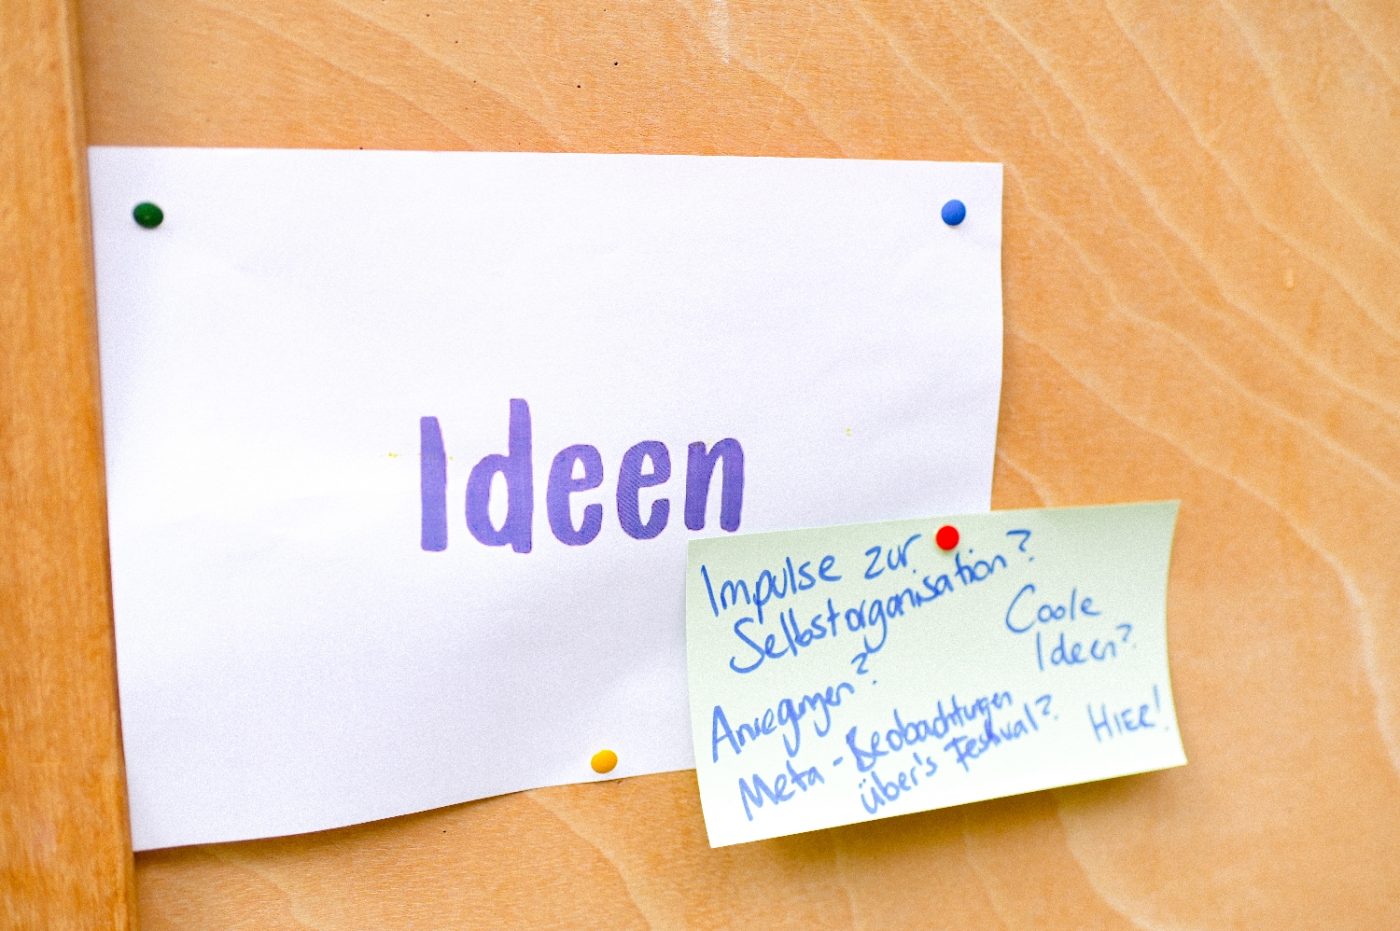 Ideen
Impulse zur
Selbstorganisation?
Coole
Ideen?
Anregungen?
Meta-Beobachtungen
über's Festival?
HIER!